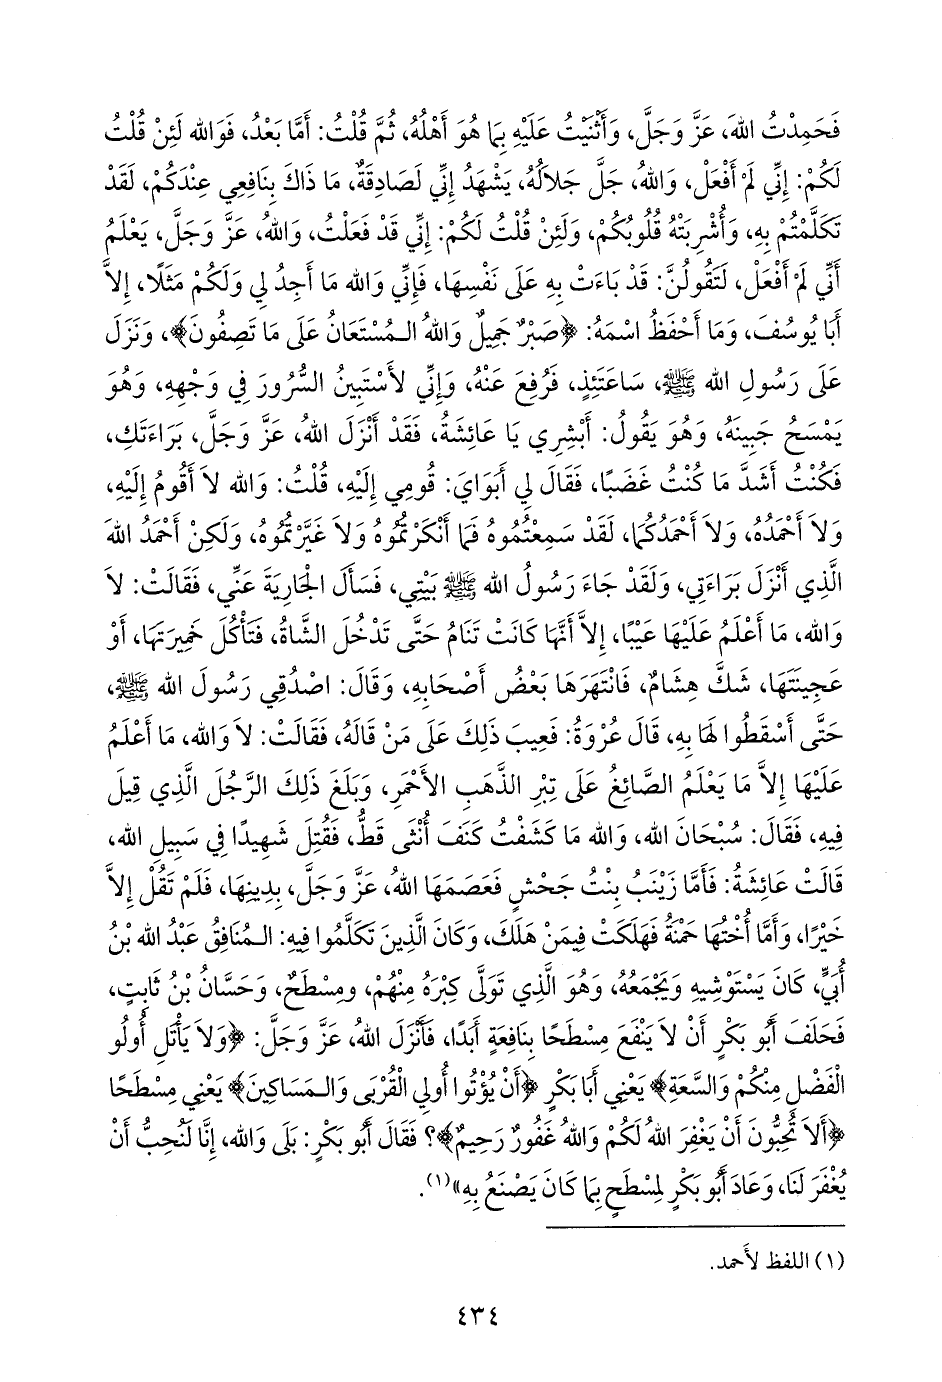 فَحَمِدْتُ اللهَ، عَزَّ وَجَلَّ، وَأَثْنَيْتُ عَلَيْهِ بِمَا هُوَ أَهْلُهُ، ثُمَّ قُلْتُ: أَمَّا بَعْدُ، فَوَالله لَئِنْ قُلْتُ
لَكُمْ: إِنِّي لَمْ أَفْعَلْ، وَاللهُ، جَلَّ جَلاَلُهُ، يَشْهَدُ إِنِّي لَصَادِقَةٌ، مَا ذَاكَ بِنَافِعِي عِنْدَكُمْ، لَقَدْ
تَكَلَّمْتُمْ بِهِ، وَأُشْرِبَتْهُ قُلُوبُكُمْ، وَلَئِنْ قُلْتُ لَكُمْ: إِنِّي قَدْ فَعَلْتُ، وَاللهُ، عَزَّ وَجَلَّ، يَعْلَمُ
أَنِّي لَمْ أَفْعَلْ، لَتَقُولُنَّ: قَدْ بَاءَتْ بِهِ عَلَى نَفْسِهَا، فَإِنِّي وَالله مَا أَجِدُ لِي وَلَكُمْ مَثَلًا، إِلاَّ
أَبَا يُوسُفَ، وَمَا أَحْفَظُ اسْمَهُ: ﴿صَبْرٌ جَمِيلٌ وَاللهُ الـمُسْتَعَانُ عَلَى مَا تَصِفُونَ﴾، وَنَزَلَ
عَلَى رَسُولِ الله ﷺ، سَاعَتَئِذٍ، فَرُفِعَ عَنْهُ، وَإِنِّي لأَسْتَبِينُ السُّرُورَ فِي وَجْهِهِ، وَهُوَ
يَمْسَحُ جَبِينَهُ، وَهُوَ يَقُولُ: أَبْشِرِي يَا عَائِشَةُ، فَقَدْ أَنْزَلَ اللهُ، عَزَّ وَجَلَّ، بَرَاءَتَكِ،
فَكُنْتُ أَشَدَّ مَا كُنْتُ غَضَبًا، فَقَالَ لِي أَبَوَايَ: قُومِي إِلَيْهِ، قُلْتُ: وَالله لاَ أَقُومُ إِلَيْهِ،
وَلاَ أَحْمَدُهُ، وَلاَ أَحْمَدُكُمَا، لَقَدْ سَمِعْتُمُوهُ فَمَا أَنْكَرْتُمُوهُ وَلاَ غَيَّرْتُمُوهُ، وَلَكِنْ أَحْمَدُ اللهَ
الَّذِي أَنْزَلَ بَرَاءَتِي، وَلَقَدْ جَاءَ رَسُولُ الله ﷺ بَيْتِي، فَسَأَلَ الْجَارِيَةَ عَنِّي، فَقَالَتْ: لاَ
وَالله، مَا أَعْلَمُ عَلَيْهَا عَيْبًا، إِلاَّ أَنَّهَا كَانَتْ تَنَامُ حَتَّى تَدْخُلَ الشَّاةُ، فَتَأْكُلَ خَمِيرَتَهَا، أَوْ
عَجِينَتَهَا، شَكَّ هِشَامٌ، فَانْتَهَرَهَا بَعْضُ أَصْحَابِهِ، وَقَالَ: اصْدُقِي رَسُولَ الله ﷺ،
حَتَّى أَسْقَطُوا لَهَا بِهِ، قَالَ عُرْوَةُ: فَعِيبَ ذَلِكَ عَلَى مَنْ قَالَهُ، فَقَالَتْ: لاَ وَالله، مَا أَعْلَمُ
عَلَيْهَا إِلاَّ مَا يَعْلَمُ الصَّائِغُ عَلَى تِبْرِ الذَّهَبِ الأَحْمَرِ، وَبَلَغَ ذَلِكَ الرَّجُلَ الَّذِي قِيلَ
فِيهِ، فَقَالَ: سُبْحَانَ الله، وَالله مَا كَشَفْتُ كَنَفَ أُنْثَى قَطُّ، فَقُتِلَ شَهِيدًا فِي سَبِيلِ الله،
قَالَتْ عَائِشَةُ: فَأَمَّا زَيْنَبُ بِنْتُ جَحْشٍ فَعَصَمَهَا اللهُ، عَزَّ وَجَلَّ، بِدِينِهَا، فَلَمْ تَقُلْ إِلاَّ
خَيْرًا، وَأَمَّا أُخْتُهَا حَمْنَةُ فَهَلَكَتْ فِيمَنْ هَلَكَ، وَكَانَ الَّذِينَ تَكَلَّمُوا فِيهِ: الـمُنَافِقُ عَبْدُ الله بْنُ
أُبَيٍّ، كَانَ يَسْتَوْشِيهِ وَيَجْمَعُهُ، وَهُوَ الَّذِي تَوَلَّى كِبْرَهُ مِنْهُمْ، ومِسْطَحٌ، وَحَسَّانُ بْنُ ثَابِتٍ،
فَحَلَفَ أَبُو بَكْرٍ أَنْ لاَ يَنْفَعَ مِسْطَحًا بِنَافِعَةٍ أَبَدًا، فَأَنْزَلَ اللهُ، عَزَّ وَجَلَّ: ﴿وَلاَ يَأْتَلِ أُولُو
الْفَضْلِ مِنْكُمْ وَالسَّعَةِ﴾ يَعْنِي أَبَا بَكْرٍ ﴿أَنْ يُؤْتُوا أُولِي الْقُرْبَى وَالـمَسَاكِينَ﴾ يَعْنِي مِسْطَحًا
﴿أَلاَ تُحِبُّونَ أَنْ يَغْفِرَ اللهُ لَكُمْ وَاللهُ غَفُورٌ رَحِيمٌ﴾؟ فَقَالَ أَبُو بَكْرٍ: بَلَى وَالله، إِنَّا لَنُحِبُّ أَنْ
يُغْفَرَ لَنَا، وَعَادَ أَبُو بَكْرٍ لِمِسْطَحٍ بِمَا كَانَ يَصْنَعُ بِهِ»(١).
(١) اللفظ لأَحمد.
٤٣٤